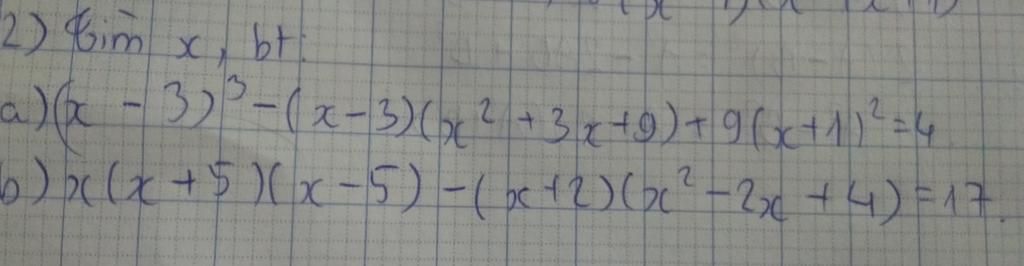 2) Tìm x, bt:
a) (x - 3)³ - (x - 3)(x² + 3x + 9) + 9(x + 1)² = 4
b) x(x + 5)(x - 5) - (x + 2)(x² - 2x + 4) = 17.